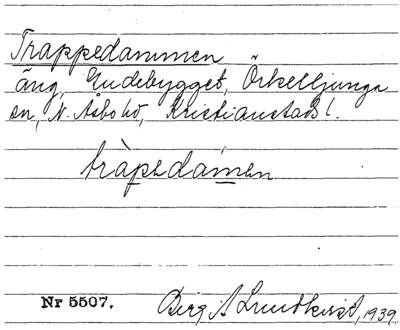 Trappedammen
äng, Eudebygget, Örkelljunga
sn, N. Åsbo hd, Kristianstads l.
tràpedàmen
Nr 5507.
Birgit Lundkvist, 1939.